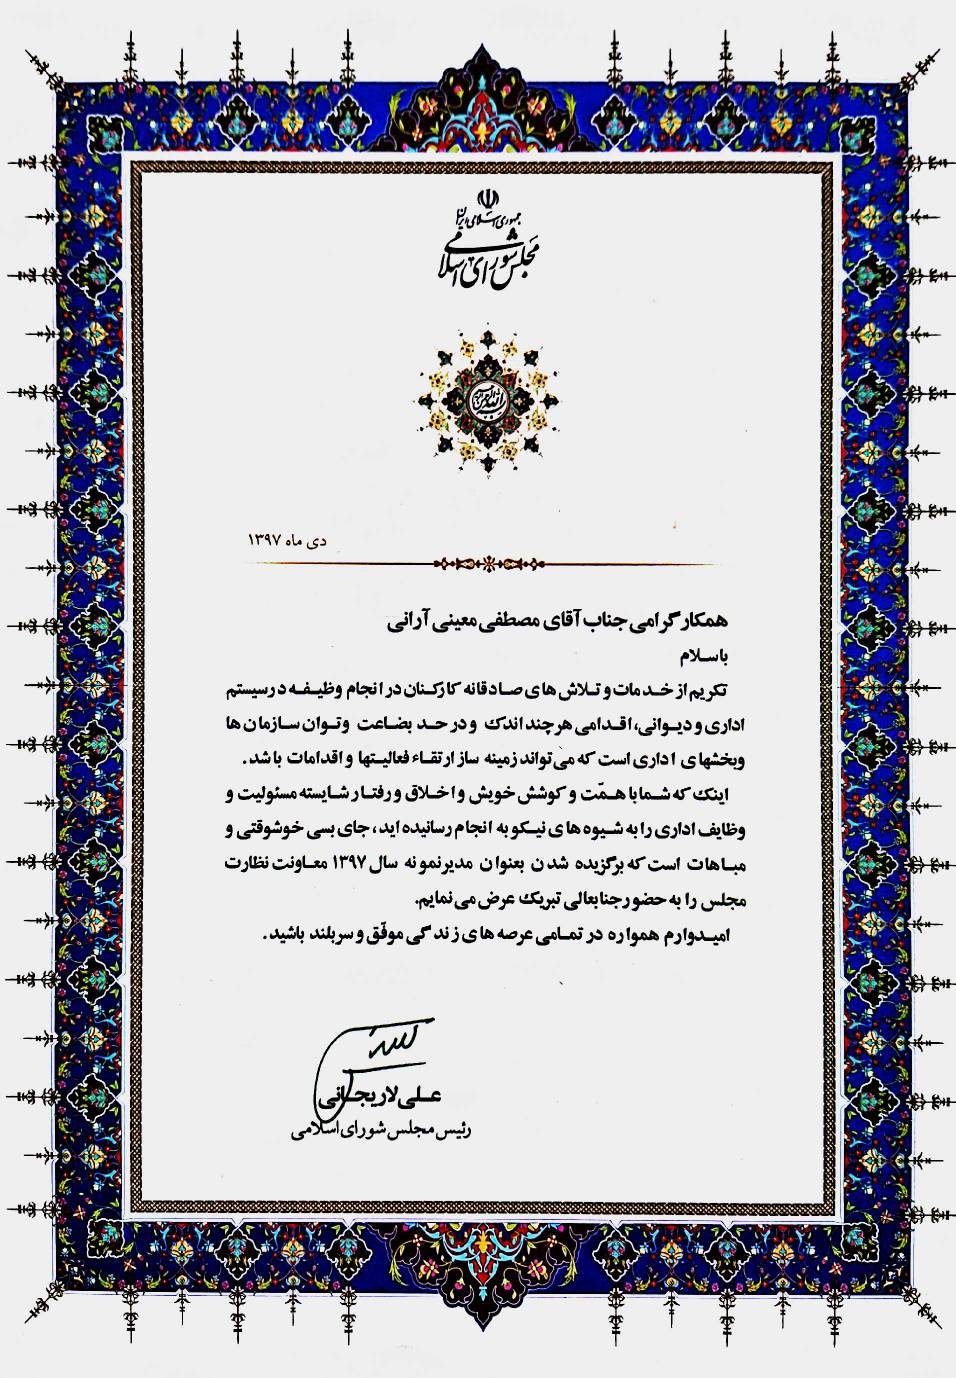 جمهوری اسلامی ایران
مجلس شورای اسلامی
بسم الله الرحمن الرحیم
دی ماه ۱۳۹۷
همکار گرامی جناب آقای مصطفی معینی آرانی
با سلام
تکریم از خدمات و تلاش های صادقانه کارکنان در انجام وظیفه در سیستم
اداری و دیوانی، اقدامی هر چند اندک و در حد بضاعت و توان سازمان ها
وبخشهای اداری است که می تواند زمینه ساز ارتقاء فعالیتها و اقدامات باشد.
اینک که شما با همّت و کوشش خویش و اخلاق و رفتار شایسته مسئولیت و
وظایف اداری را به شیوه های نیکو به انجام رسانیده اید، جای بسی خوشوقتی و
مباهات است که برگزیده شدن بعنوان مدیر نمونه سال ۱۳۹۷ معاونت نظارت
مجلس را به حضور جنابعالی تبریک عرض می نمایم.
امیدوارم همواره در تمامی عرصه های زندگی موفّق و سربلند باشید.
علی لاریجانی
رئیس مجلس شورای اسلامی